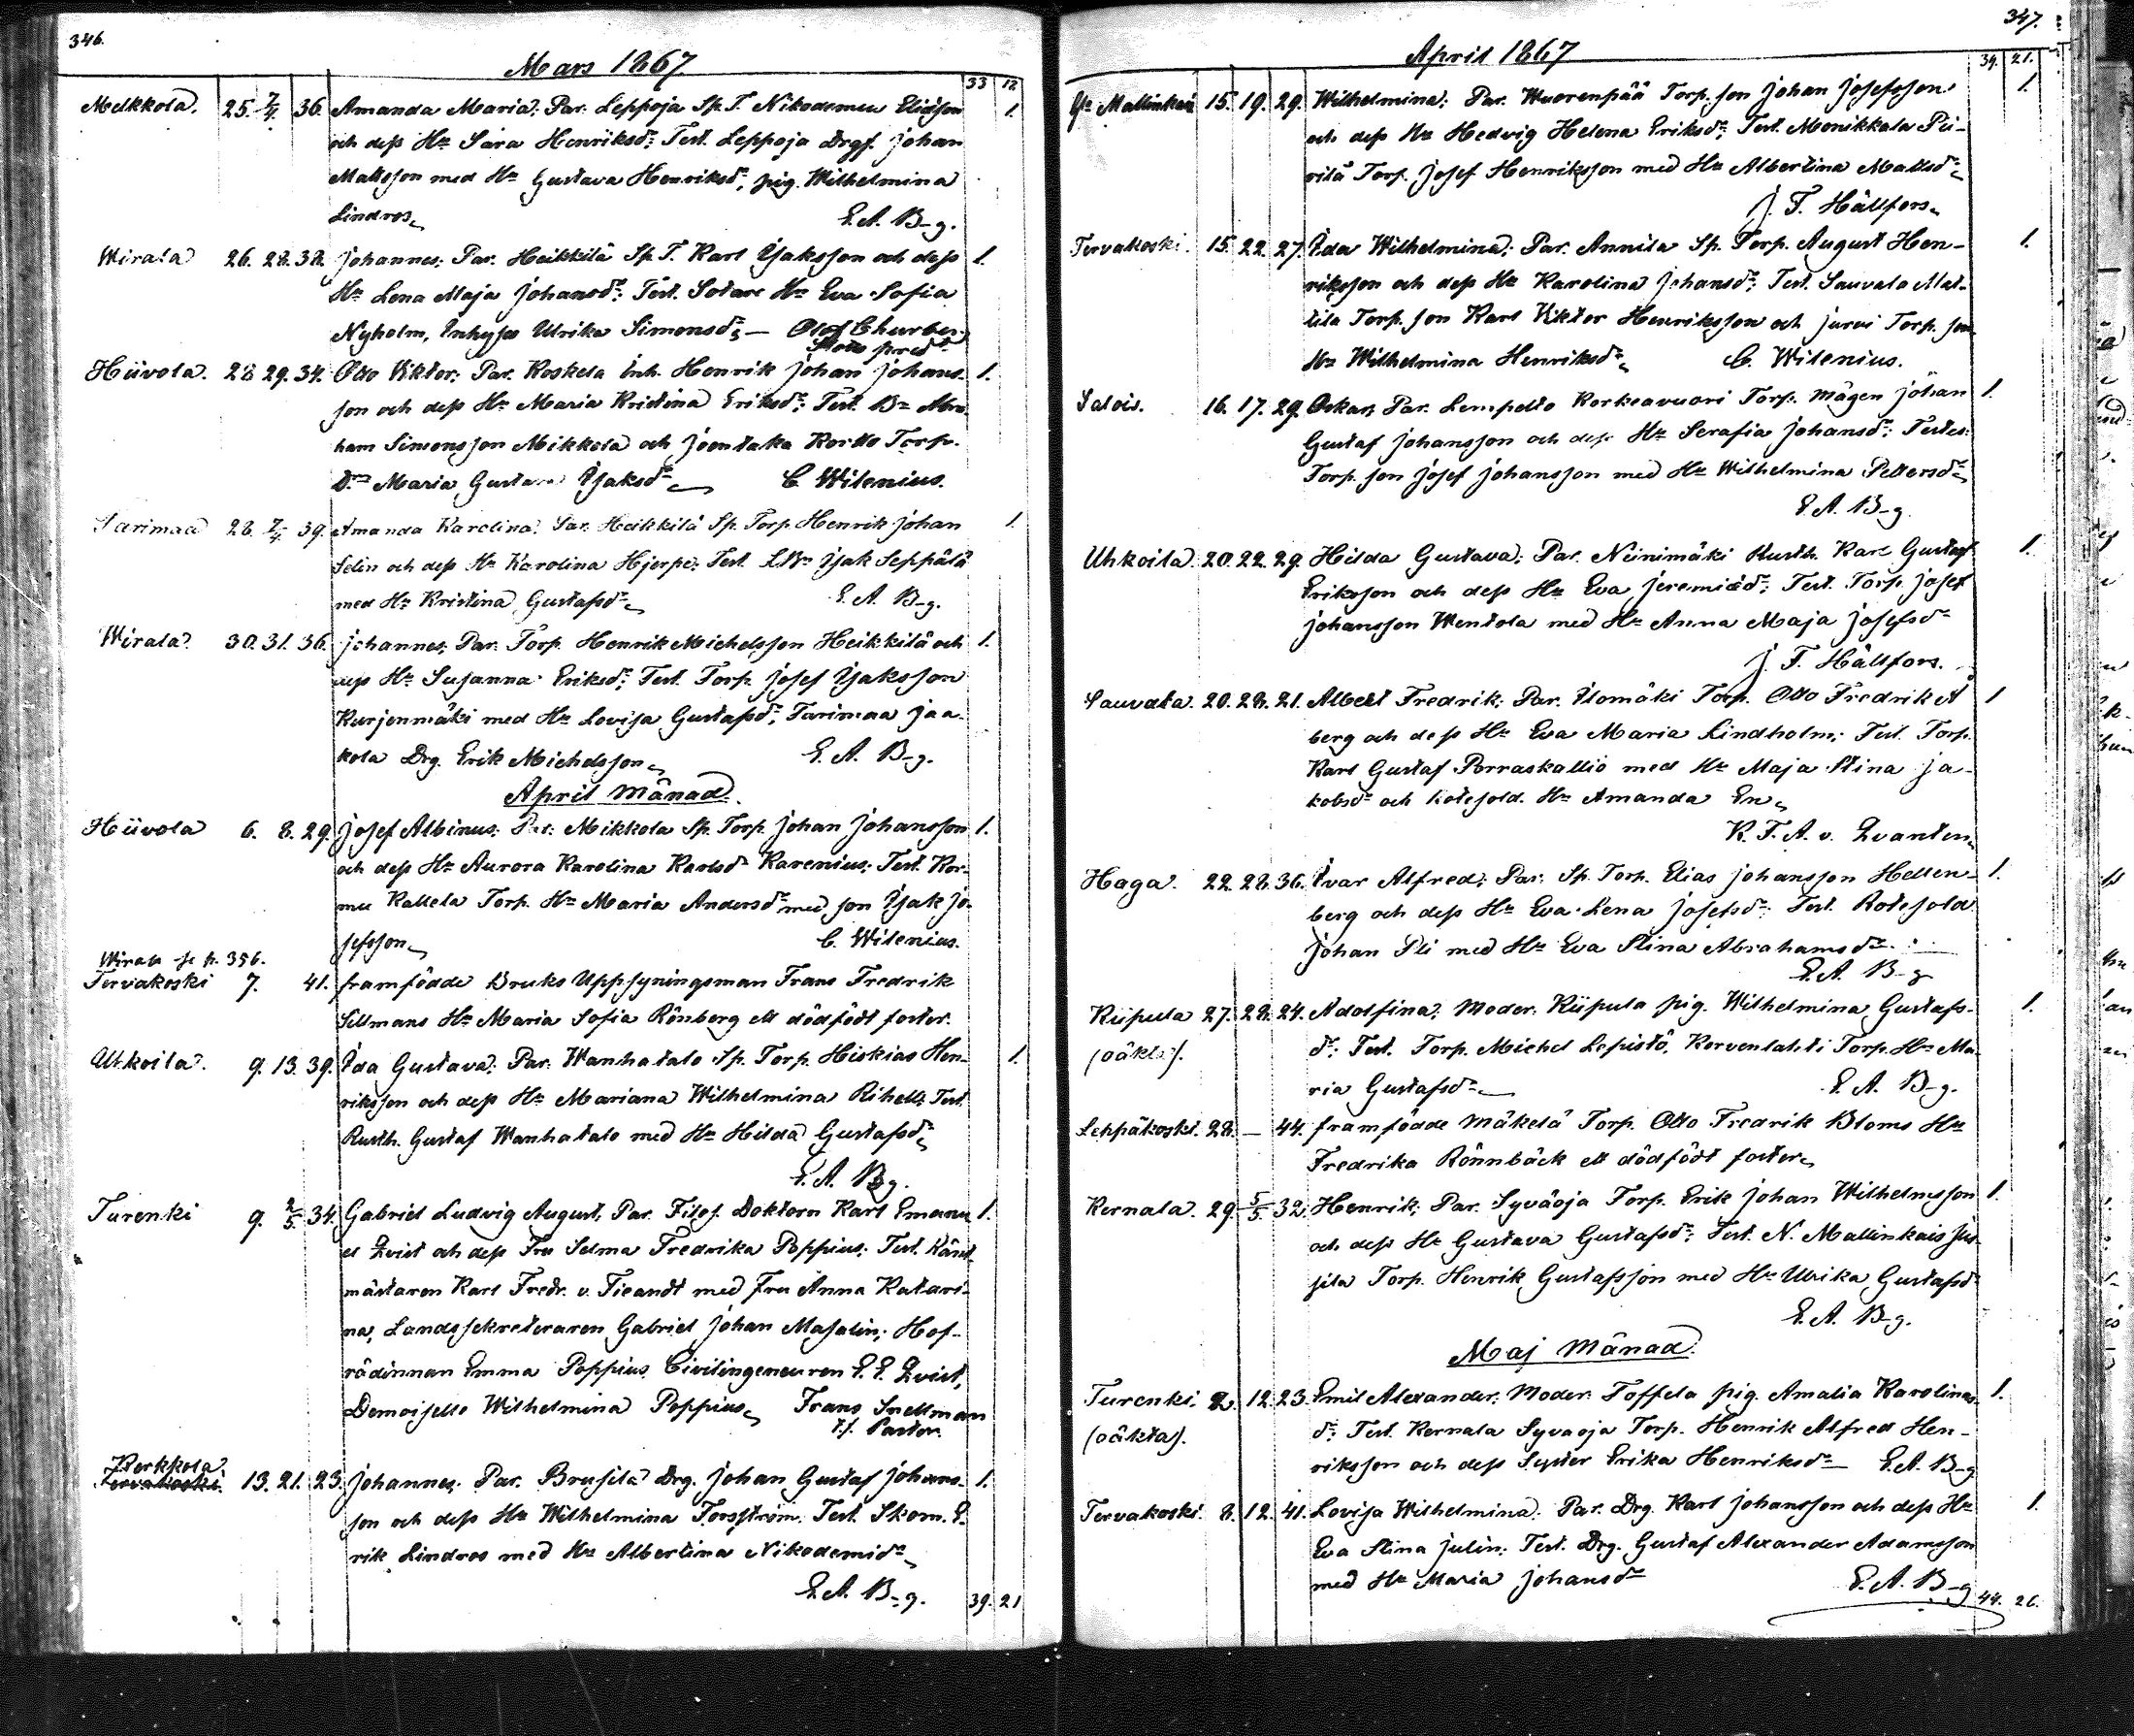 346.
Mars 1867
33 12
Melkkola. 25. 7/4 36. Amanda Maria; Par. Leppoja Sp. T. Nikodemus Eliasson 1.
och dess Hu Sara Henriksdr; Test. Leppoja Drgf. Johan
Matsson med Hu Gustava Henriksdr, pig. Wilhelmina
Lindros E. A. B-g.
Wirala 26. 28. 38. Johannes; Par. Heikkilä Sp. T. Karl Isaksson och dess 1.
Hu Lena Maja Johansdr; Test. Sotare Hu Eva Sofia
Nyholm, Inhyses Ulrika Simonsdr — Olof Churber
Slotts pred.
Hiivola. 28 29. 34. Otto Viktor; Par. Koskela Inh. Henrik Johan Johans- 1.
son och dess Hu Maria Kristina Eriksdr; Test. Bn Abra-
ham Simonsson Mikkola och Joentaka Kortto Torp.
Dr Maria Gustava Isaksdr C. Wilenius.
Tarimaa 28. 7/4 39. Amanda Karolina; Par. Heikkilä Sp. Torp. Henrik Johan 1.
Selin och dess Hu Karolina Hjerpe; Test. LBn Isak Seppälä
med Hu Kristina Gustafsdr E. A. B-g.
Wirala 30. 31. 36. Johannes; Par. Torp. Henrik Michelsson Heikkilä och 1.
dess Hu Susanna Eriksdr; Test. Torp. Josef Isaksson
Kurjenmäki med Hu Lovisa Gustafsdr, Tarimaa Jaa-
kola Drg. Erik Michelsson E. A. B-g.
April Månad.
Hiivola 6. 8. 29. Josef Albinus; Par. Mikkola Sp. Torp. Johan Johansson 1.
och dess Hu Aurora Karolina Karlsdr Karenius; Test. Kor-
mu Kallela Torp. Hu Maria Andersdr med son Isak Jo-
sefsson C. Wilenius.
Wirala se p. 356.
Tervakoski 7. 41. framfödde Bruks Uppsyningsman Frans Fredrik
Sellmans Hu Maria Sofia Rönberg ett dödfödt foster.
Uhkoila. 9. 13. 39. Ida Gustava; Par. Wanhatalo Sp. Torp. Hiskias Hen- 1.
riksson och dess Hu Mariana Wilhelmina Rihell; Test.
Rusth. Gustaf Wanhatalo med Hu Hilda Gustafsdr
E. A. Bg.
Turenki 9. 2/5 34. Gabriel Ludvig August, Par. Filos. Doktorn Karl Emanu- 1.
el Qvist och dess Fru Selma Fredrika Poppius; Test. Ränt-
mästaren Karl Fredr. v. Fieandt med Fru Anna Katari-
na, Landssekreteraren Gabriel Johan Masalin, Hof-
rådinnan Emma Poppius, Civilingeneuren E. E. Qvist,
Demoiselle Wilhelmina Poppius Frans Snellman
t.f. Pastor.
Kerkkola
Tervakoski 13. 21. 23. Johannes; Par. Brusila Drg. Johan Gustaf Johans- 1.
son och dess Hu Wilhelmina Forsström; Test. Skom. E-
rik Lindroo med Hu Albertina Nikodemidr
E. A. B-g. 39. 21
347.
April 1867
39. 21.
Yt. Mallinkais 15. 19. 29. Wilhelmina; Par. Wuorenpää Torp. son Johan Josefsson 1.
och dess Hu Hedvig Helena Eriksdr; Test. Monikkala Pii-
rilä Torp. Josef Henriksson med Hu Albertina Mattsdr
J. F. Hällfors
Tervakoski. 15. 22. 27. Ida Wilhelmina; Par. Annila Sp. Torp. August Hen- 1.
riksson och dess Hu Karolina Johansdr; Test. Sauvala Mat-
tila Torp. son Karl Viktor Henriksson och Jurvi Torp. son
Hu Wilhelmina Henriksdr C. Wilenius.
Salois. 16. 17. 29. Oskar; Par. Lempelto Korkeavuori Torp. mågen Johan 1.
Gustaf Johansson och dess Hu Serafia Johansdr; Testes:
Torp. son Josef Johansson med Hu Wilhelmina Pettersdr
E. A. B-g.
Uhkoila. 20. 22. 29. Hilda Gustava; Par. Niinimäki Rusth. Karl Gustaf 1.
Eriksson och dess Hu Eva Jeremiædr; Test. Torp. Josef
Johansson Wentola med Hu Anna Maja Josefsdr
J. F. Hällfors.
Sauvala. 20. 28. 21. Albert Fredrik; Par. Ilomäki Torp. Otto Fredrik A 1
berg och dess Hu Eva Maria Lindholm; Test. Torp.
Karl Gustaf Porraskallio med Hu Maja Stina Ja-
kobsdr och Rotesold. Hu Amanda En
K. F. A. v. Qvanten
Haga. 22. 28. 36. Ivar Alfred; Par. Sp. Torp. Elias Johansson Hellen- 1.
berg och dess Hu Eva Lena Josefsdr; Test. Rotesold.
Johan Pli med Hu Eva Stina Abrahamsdr
E. A. B-g
Kiipula 27. 28. 24. Adolfina; Moder: Kiipula pig. Wilhelmina Gustafs- 1.
(oäkta). dr; Test. Torp. Michel Lepistö, Korvenlahti Torp. Hu Ma-
ria Gustafsdr E. A. B-g.
Leppäkoski. 28. — 44. framfödde Mäkelä Torp. Otto Fredrik Bloms Hu
Fredrika Rönnbäck ett dödfödt foster
Kernala. 29. 5/5 32. Henrik; Par. Syväoja Torp. Erik Johan Wilhelmsson 1.
och dess Hu Gustava Gustafsdr; Test. N. Mallinkais Jus-
sila Torp. Henrik Gustafsson med Hu Ulrika Gustafsdr
E. A. B-g.
Maj Månad.
Turenki. 2. 12. 23. Emil Alexander; Moder: Toffela pig. Amalia Karolinas- 1.
(oäkta). dr; Test. Kernala Syvaoja Torp. Henrik Alfred Hen-
riksson och dess Syster Erika Henriksdr E. A. B-g
Tervakoski. 8. 12. 41. Lovisa Wilhelmina; Par. Drg. Karl Johansson och dess Hu 1.
Eva Stina Julin; Test. Drg. Gustaf Alexander Adamsson
med Hu Maria Johansdr E. A. B-g
44. 26.